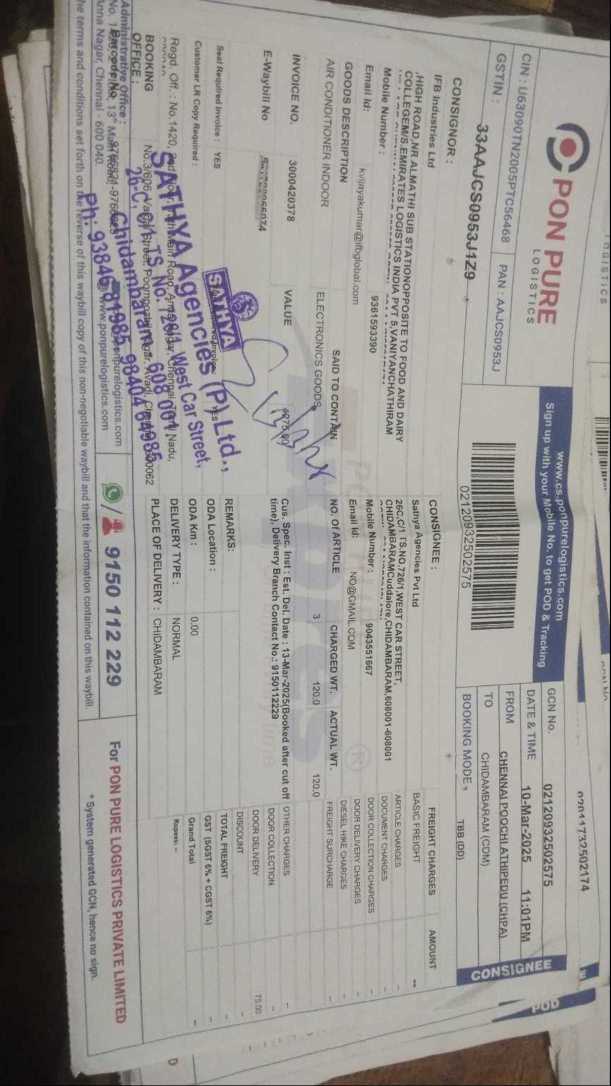 PON PURE
LOGISTICS
CIN : U63090TN2005PTC56468
PAN : AAJCS0953J
GSTIN :
33AAJCS0953J1Z9
www.cs.ponpurelogistics.com
Sign up with your Mobile No. to get POD & Tracking
02120932502575
GCN No.
02120932502575
DATE & TIME
10-Mar-2025 11:01PM
FROM
CHENNAI POOCHI ATHIPEDU (CHPA)
TO
CHIDAMBARAM (CDM)
BOOKING MODE
TBB (DD)
CONSIGNEE
POD
CONSIGNOR :
IFB Industries Ltd
,HIGH ROAD,NR ALMATHI SUB STATIONOPPOSITE TO FOOD AND DAIRY
COLLEGEM/S.EMIRATES LOGISTICS INDIA PVT 5,VANIYANCHATHIRAM
Mobile Number : 9361593390
Email Id: kvijayakumar@ifbglobal.com
CONSIGNEE :
Sathya Agencies Pvt Ltd
26C,C/1 TS.NO.726/1,WEST CAR STREET,
CHIDAMBARAMCuddalore,CHIDAMBARAM,608001-608001
Mobile Number : 9043551667
Email Id: NO@GMAIL.COM
GOODS DESCRIPTION
AIR CONDITIONER INDOOR
SAID TO CONTAIN
ELECTRONICS GOODS
NO. OF ARTICLE
3
CHARGED WT.
120.0
ACTUAL WT.
120.0
INVOICE NO.
3000420378
VALUE
E-Waybill No
Cus. Spec. Inst : Est. Del. Date : 13-Mar-2025(Booked after cut off
time), Delivery Branch Contact No.: 9150112229
Seal Required Invoice : YES
Customer LR Copy Required :
REMARKS:
ODA Location :
ODA Km : 0.00
DELIVERY TYPE : NORMAL
PLACE OF DELIVERY : CHIDAMBARAM
FREIGHT CHARGES AMOUNT
BASIC FREIGHT --
ARTICLE CHARGES
DOCUMENT CHARGES
DOOR COLLECTION CHARGES
DOOR DELIVERY CHARGES
DIESEL HIKE CHARGES
FREIGHT SURCHARGE
OTHER CHARGES
DOOR COLLECTION
DOOR DELIVERY 75.00
DISCOUNT
TOTAL FREIGHT
GST (SGST 6% + CGST 6%)
Grand Total
Rupees: --
SATHYA
SATHYA Agencies (P) Ltd.,
26-C, C/1, TS No. 726/1, West Car Street,
Chidambaram - 608 001
Ph: 93846 81985, 98404 84985
Regd. Off. : No.1420,
BOOKING
OFFICE :
Administrative Office :
Anna Nagar, Chennai - 600 040.
www.ponpurelogistics.com
9150 112 229
For PON PURE LOGISTICS PRIVATE LIMITED
* System generated GCN, hence no sign.
he terms and conditions set forth on the reverse of this waybill copy of this non-negotiable waybill and that the information contained on this waybill.